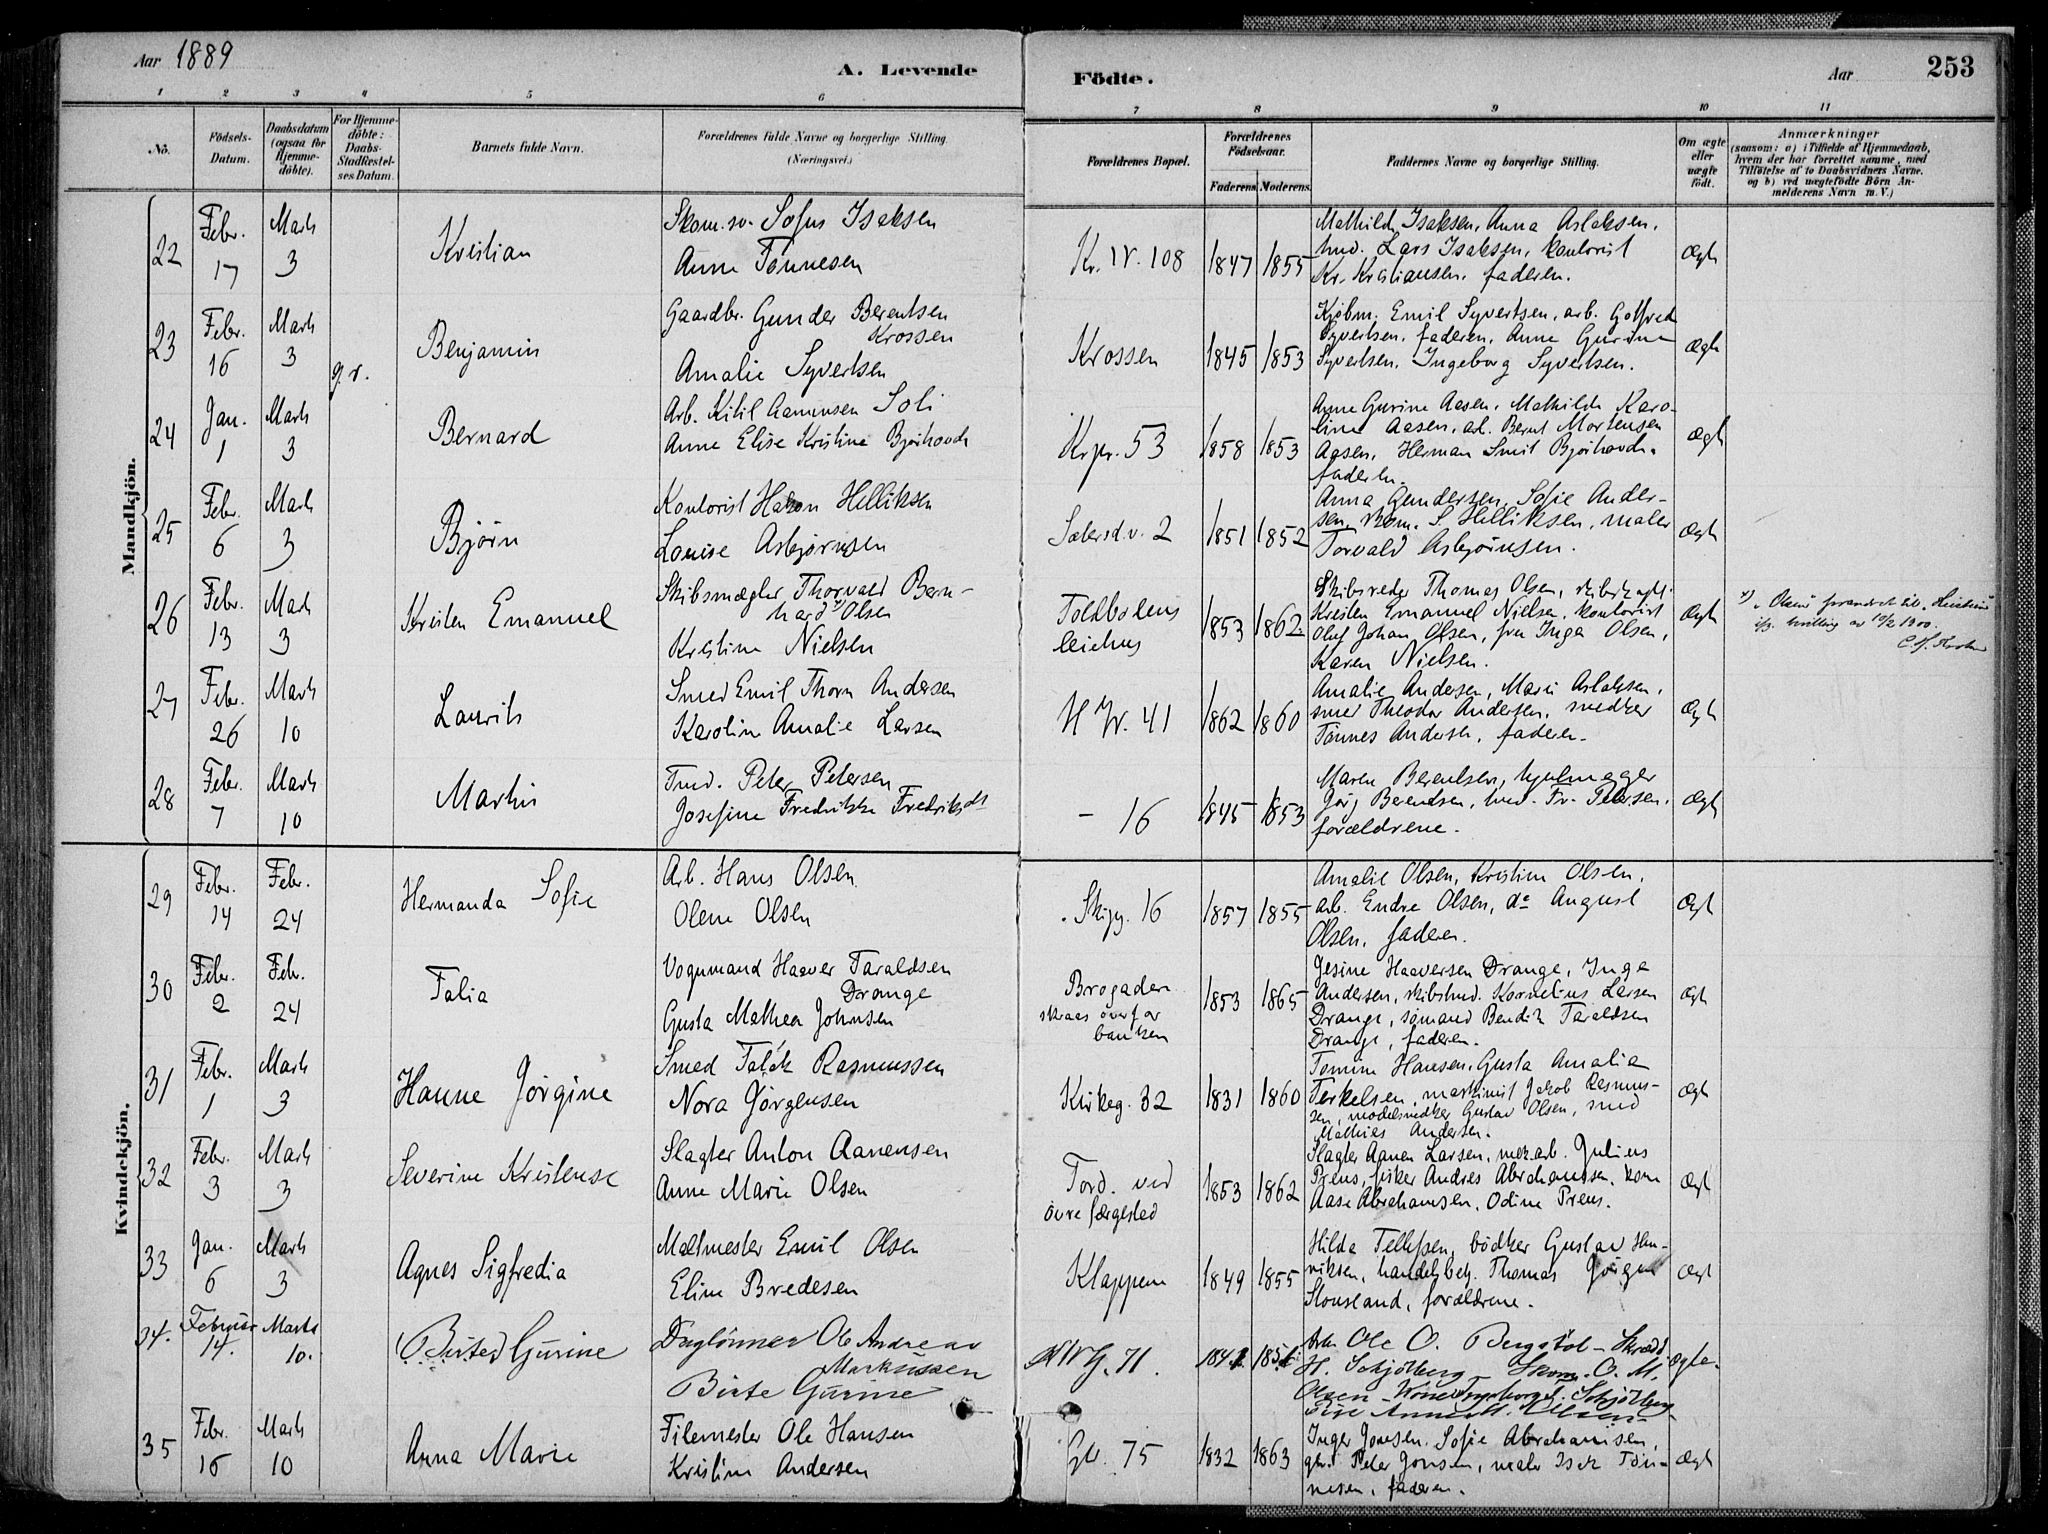 Aar 1889
A. Levende Födte.
Aar
253
1 2 3 4 5 6 7 8 9 10 11
No.
Födsels-Datum.
Daabsdatum (ogsaa for Hjemmedöbte).
For Hjemmedöbte: Daabs-Stadfæstelses Datum.
Barnets fulde Navn.
Forældrenes fulde Navne og borgerlige Stilling. (Næringsvei.)
Forældrenes Bopæl.
Forældrenes Födselsaar.
Faderens. Moderens.
Faddernes Navne og borgerlige Stilling.
Om ægte eller uægte født.
Anmærkninger
(saasom: a) i Tilfælde af Hjemmedaab,
hvem der har forrettet samme, med
Tilföielse af to Daabsvidners Navne.
og b) ved uægtefödte Börn Anmelderens Navn m. V.)
Mandkjön.
22 Febr. 17 Marts 3 Kristian
Skom.sv. Sofus Isaksen
Anne Tönnesen
Kr. IV. 108 1847 1855
Mathilde Isaksen, Anna Aslaksen,
tmd. Lars Isaksen, kontorist
Kr. Kristiansen, faderen.
Ægt
23 Febr. 16 Marts 3 Benjamin
Gaardbr. Gunder Berentsen
Krossen
Amalie Syvertsen
Krossen 1845 1853
Kjöbm. Emil Syvertsen, arb. Gotfred
Syvertsen, faderen, Anne Gurine
Syvertsen, Ingeborg Syvertsen.
Ægt
24 Jan. 1 Marts 3 Bernard
Arb. Kitil Aanensen Soli
Anne Elise Kristine
Krpr. 53 1858 1853
Anne Gurine Aasen, Mathilde Karo-
line Aasen, arb. Bernt Mortensen
Aasen, Herman Smit
faderen.
Ægt
25 Febr. 6 Marts 3 Björn
Kontorist Hakon Helliksen
Louise Asbjørnsen
Sætersd.v. 2 1851 1852
Anna Gundersen, Sofie Ander-
sen, skom. S. Helliksen, maler
Torvald Asbjörnsen.
Ægt
26 Febr. 13 Marts 3 Kristen Emanuel
Skibsmægler Thorvald Bern-
hard Olsen
Kristine Nielsen
Toldbodens
1853 1862
Skibsreder Thomas Olsen, skibskapt.
Kristen Emanuel Nielsen, kontorist
Oluf Johan Olsen, fru Inga Olsen,
Karen Nielsen.
Ægt
x) "Olsen" forandret til
27 Febr. 26 Marts 10 Laurits
Smed Emil Thorn Andersen
Karoline Amalie Larsen
H IV. 41 1862 1860
Amalie Andersen, Marie Aslaksen,
smed Theodor Andersen, snedker
Tönnes Andersen, faderen.
Ægt
28 Febr. 7 Marts 10 Martin
Tmd. Peter Petersen
Josefine Fredrikke Fredriksdt
- 16 1845 1853
Maren Berentsen, hjulmager
Jörg Berentsen, tmd. Fr. Petersen,
forældrene.
Ægt
Kvindekjön.
29 Febr. 14 Febr. 24 Hermanda Sofie
Arb. Hans Olsen
Olene Olsen
Skipg. 16 1857 1855
Amalie Olsen, Kristine Olsen,
arb. Endre Olsen, do August
Olsen, faderen.
Ægt
30 Febr. 2 Febr. 24 Talia
Vognmand Haaver Taraldsen
Drange
Gusta Mathea Johnsen
Brogaden
skraas overfor
banken
1853 1865
Gesine Haaversen Drange, Inga
Andersen, skibstmd. Kornelius Larsen
Drange, sømand Bendik Taraldsen
Drange, faderen.
Ægt
31 Febr. 1 Marts 3 Hanne Jörgine
Smed Rasmussen
Nora Jörgensen
Kirkeg. 32 1831 1860
Tomine Hansen, Gusta Amalia
Terkelsen, maskinist Jakob Rasmus-
sen, modelsnedker Gustav Olsen, smed
Mathies Andersen.
Ægt
32 Febr. 3 Marts 3 Severine Kristense
Slagter Anton Aanensen
Anne Marie Olsen
Tord. ved
övre færgested
1853 1862
Slagter Aanen Larsen, mek.arb. Julius
Preus, fisker Andres Abrahamsen, kone
Aase Abrahamsen, Odine Preus.
Ægt
33 Jan. 6 Marts 3 Agnes Sigfredia
Maltmester Emil Olsen
Eline Bredesen
Klappene 1849 1855
Hilda Tellefsen, bödker Gustav Hen-
riksen, handelsbetj. Thomas Jörgen
Stousland, forældrene.
Ægt
34. Februar 14. Marts 10. Birte Gurine
Daglönner Ole Andreas
Markussen
Birte Gurine
71.
Arb. Ole O. Bergstöl - Skrædd.
H. Schjölberg - Skom. O. M.
Olsen
ægte.
35 Febr. 16 Marts 10 Anna Marie
Filemester Ole Hansen
Kristine Andersen
75 1832 1863
Inger Jonsen, Sofie Abrahamsen,
gbr. Peter Jonsen, maler Isak Tön-
nesen, faderen.
Ægt